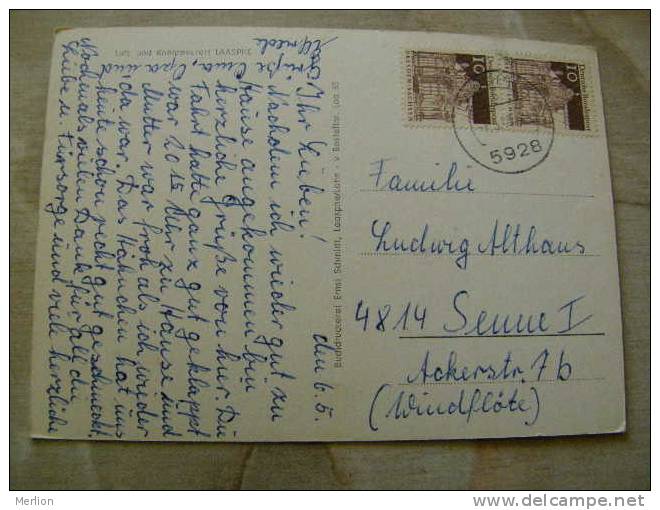 den 6.5.
Ihr Lieben!
Nachdem ich wieder gut zu
Hause angekommen bin
herzliche Grüße von hier. Die
Fahrt hatte ganz gut geklappt
war 20 15 hier zu Hause und
Mutter war froh als ich wieder
da war. Das Hähnchen hat uns
heute schon recht gut geschmeckt.
Nochmals vielen Dank für all die
Liebe u. Fürsorge und viele herzliche
Grüße Oma, Opa und
LAASPHE
Buchdruckerei Ernst Schmitt, Laasphe/Lahn
10
10
5928
Familie
Ludwig Althaus
4814 Senne I
Ackerstr. 7b
(Windflöte)
Merlion
www.delcampe.net